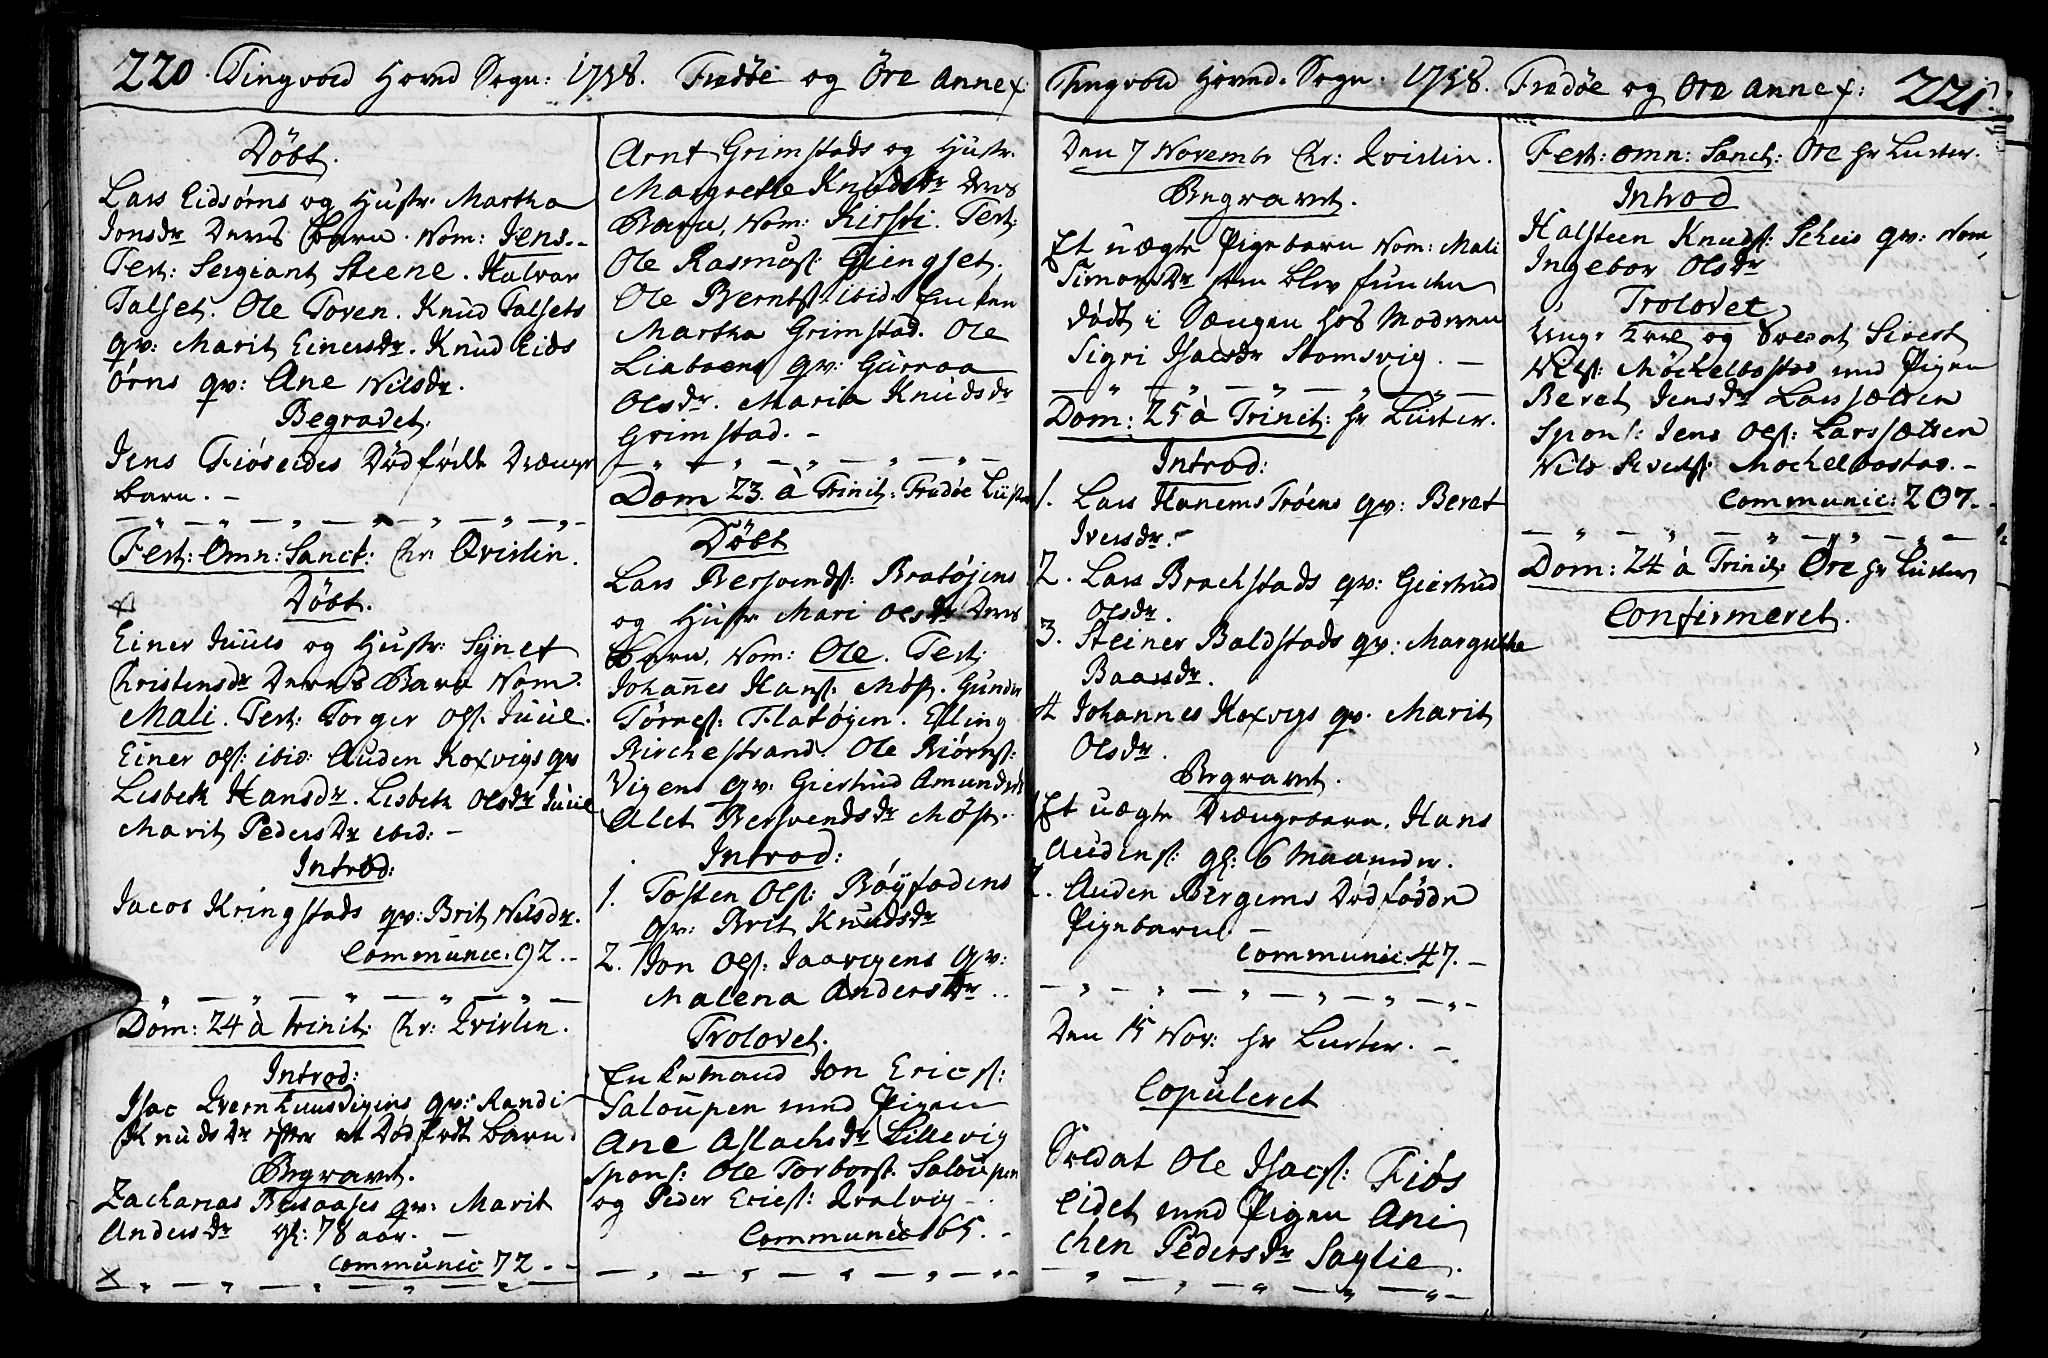 220. Tingvold Hoved Sogn: 1758. Fredøe og Öre Annex:
Döbt.
Lars Eidsørns og Hustr: Martha
Jonsdr Deres Barn. Nom: Jens.-
Test: Sergiant Steene. Halvar
Talset. Ole Toven. Knud Talsets
qv: Marit Einersdr. Knud Eids
örns qv: Ane Nilsdr.
Begravet.
Jens Fiöseides Dödfödde Drænge
barn. -
Fest: Omn: Sanct: Hr: Qvislin.
Döbt.
Einer Juuls og Hustr: Synet
Christensdr Deres Barn Nom:
Mali. Test: Torger Ols: Juul.
Einer Ols: ibid: Auden Koxvigs qv
Lisbeth Hansdr. Lisbeth Olsdr Juul
Marit Pedersdr ibid: -
Introd:
Jacob Kringstads qv: Brit Nilsdr.
Communic: 92.-
Dom: 24 à trinit: Hr: Qvislin.
Introd:
Isac Qvernhuusvigens qv: Randi
Knudsdr efter et Dödfödt barn.
Begravet.
Zacharias qv: Marit
Andersdr gl: 78 aar. -
Communic: 72. -
Arnt Grimstads og Hustr.
Margrethe Knudsdr Deres
Barn, Nom: Kirsti. Test:
Ole Rasmuss: Giengset.
Ole Berntss: ibid. Enken
Martha Grimstad. Ole
Liaboens qv: Gurroa
Olsdr. Maria Knudsdr
Grimstad. -
Dom 23 à Trinit: Fredøe Luster
Döbt
Lars Bersvends: Bratöjens
og Hustr Mari Olsdr Deres
Barn, Nom: Ole. Test:
Johannes Hans: Möst. Gunder
Törres: Flatöjen. Elling
Birchestrand. Ole Biörns:
Vigens qv: Giertrud Amundsdr
Alet Bersvendsdr Möst.
Introd:
1. Tosten Ols: Röyfodens
qv: Brit Knudsdr
2. Jon Ols: Jaavigens qv:
Malena Andersdr.
Trolovet.
Enkemand Jon Erics:
Saloupen med Pigen
Ane Aslachsdr Lillevig
spons: Ole Torbors: Saloupen
og Peder Erics: Qvalvig -
Communic 65. -
Tingvold Hoved. Sogn. 1758. Fredøe og Øre Annex: 221.
Den 7 Novembr Hr: Qvislin.
Begravet.
Et uægte Pigebarn Nom: Mali
Simonsdr som blev funden
dödt i Sængen hos Moderen
Sigri Isacsdr Stomsvig. -
Dom: 25 à Trinit: Hr Luster.
Introd:
1. Lars Hanemstrøens qv: Beret
Iversdr. -
2. Lars Brachstads qv: Giertrud
Olsdr.
3. Steiner Baldstads qv: Margrethe
Baarsdr.
4 Johannes Koxvigs qv. Marit
Olsdr.
Begravet.
Et uægte Drængebarn, Hans
Audens: gl: 6 Maaneder.
2. Auden Bergems Dödfödde
Pigebarn. -
Communic: 47. -
Den 15 Nov: Hr Luster. -
Copuleret
Soldat Ole Isacs: Fiös
eidet med Pigen Ani
chen Pedersdr Saglie.
Fest: omn: Sanct: Öre Hr Luster.
Introd
Halsteen Knuds: Scheis qv: Nom
Ingebor Olsdr
Trolovet
Unge Karl og Soldat Sivert
Nils: Möchelbostad med Pigen
Beret Jensdr Larssætren
Spons: Jens Ols: Larssætren
Nils Siverts: Mochelbostad. -
Communic: 207. -
Dom: 24 à Trinit: Öre Hr Luster
Confirmeret.